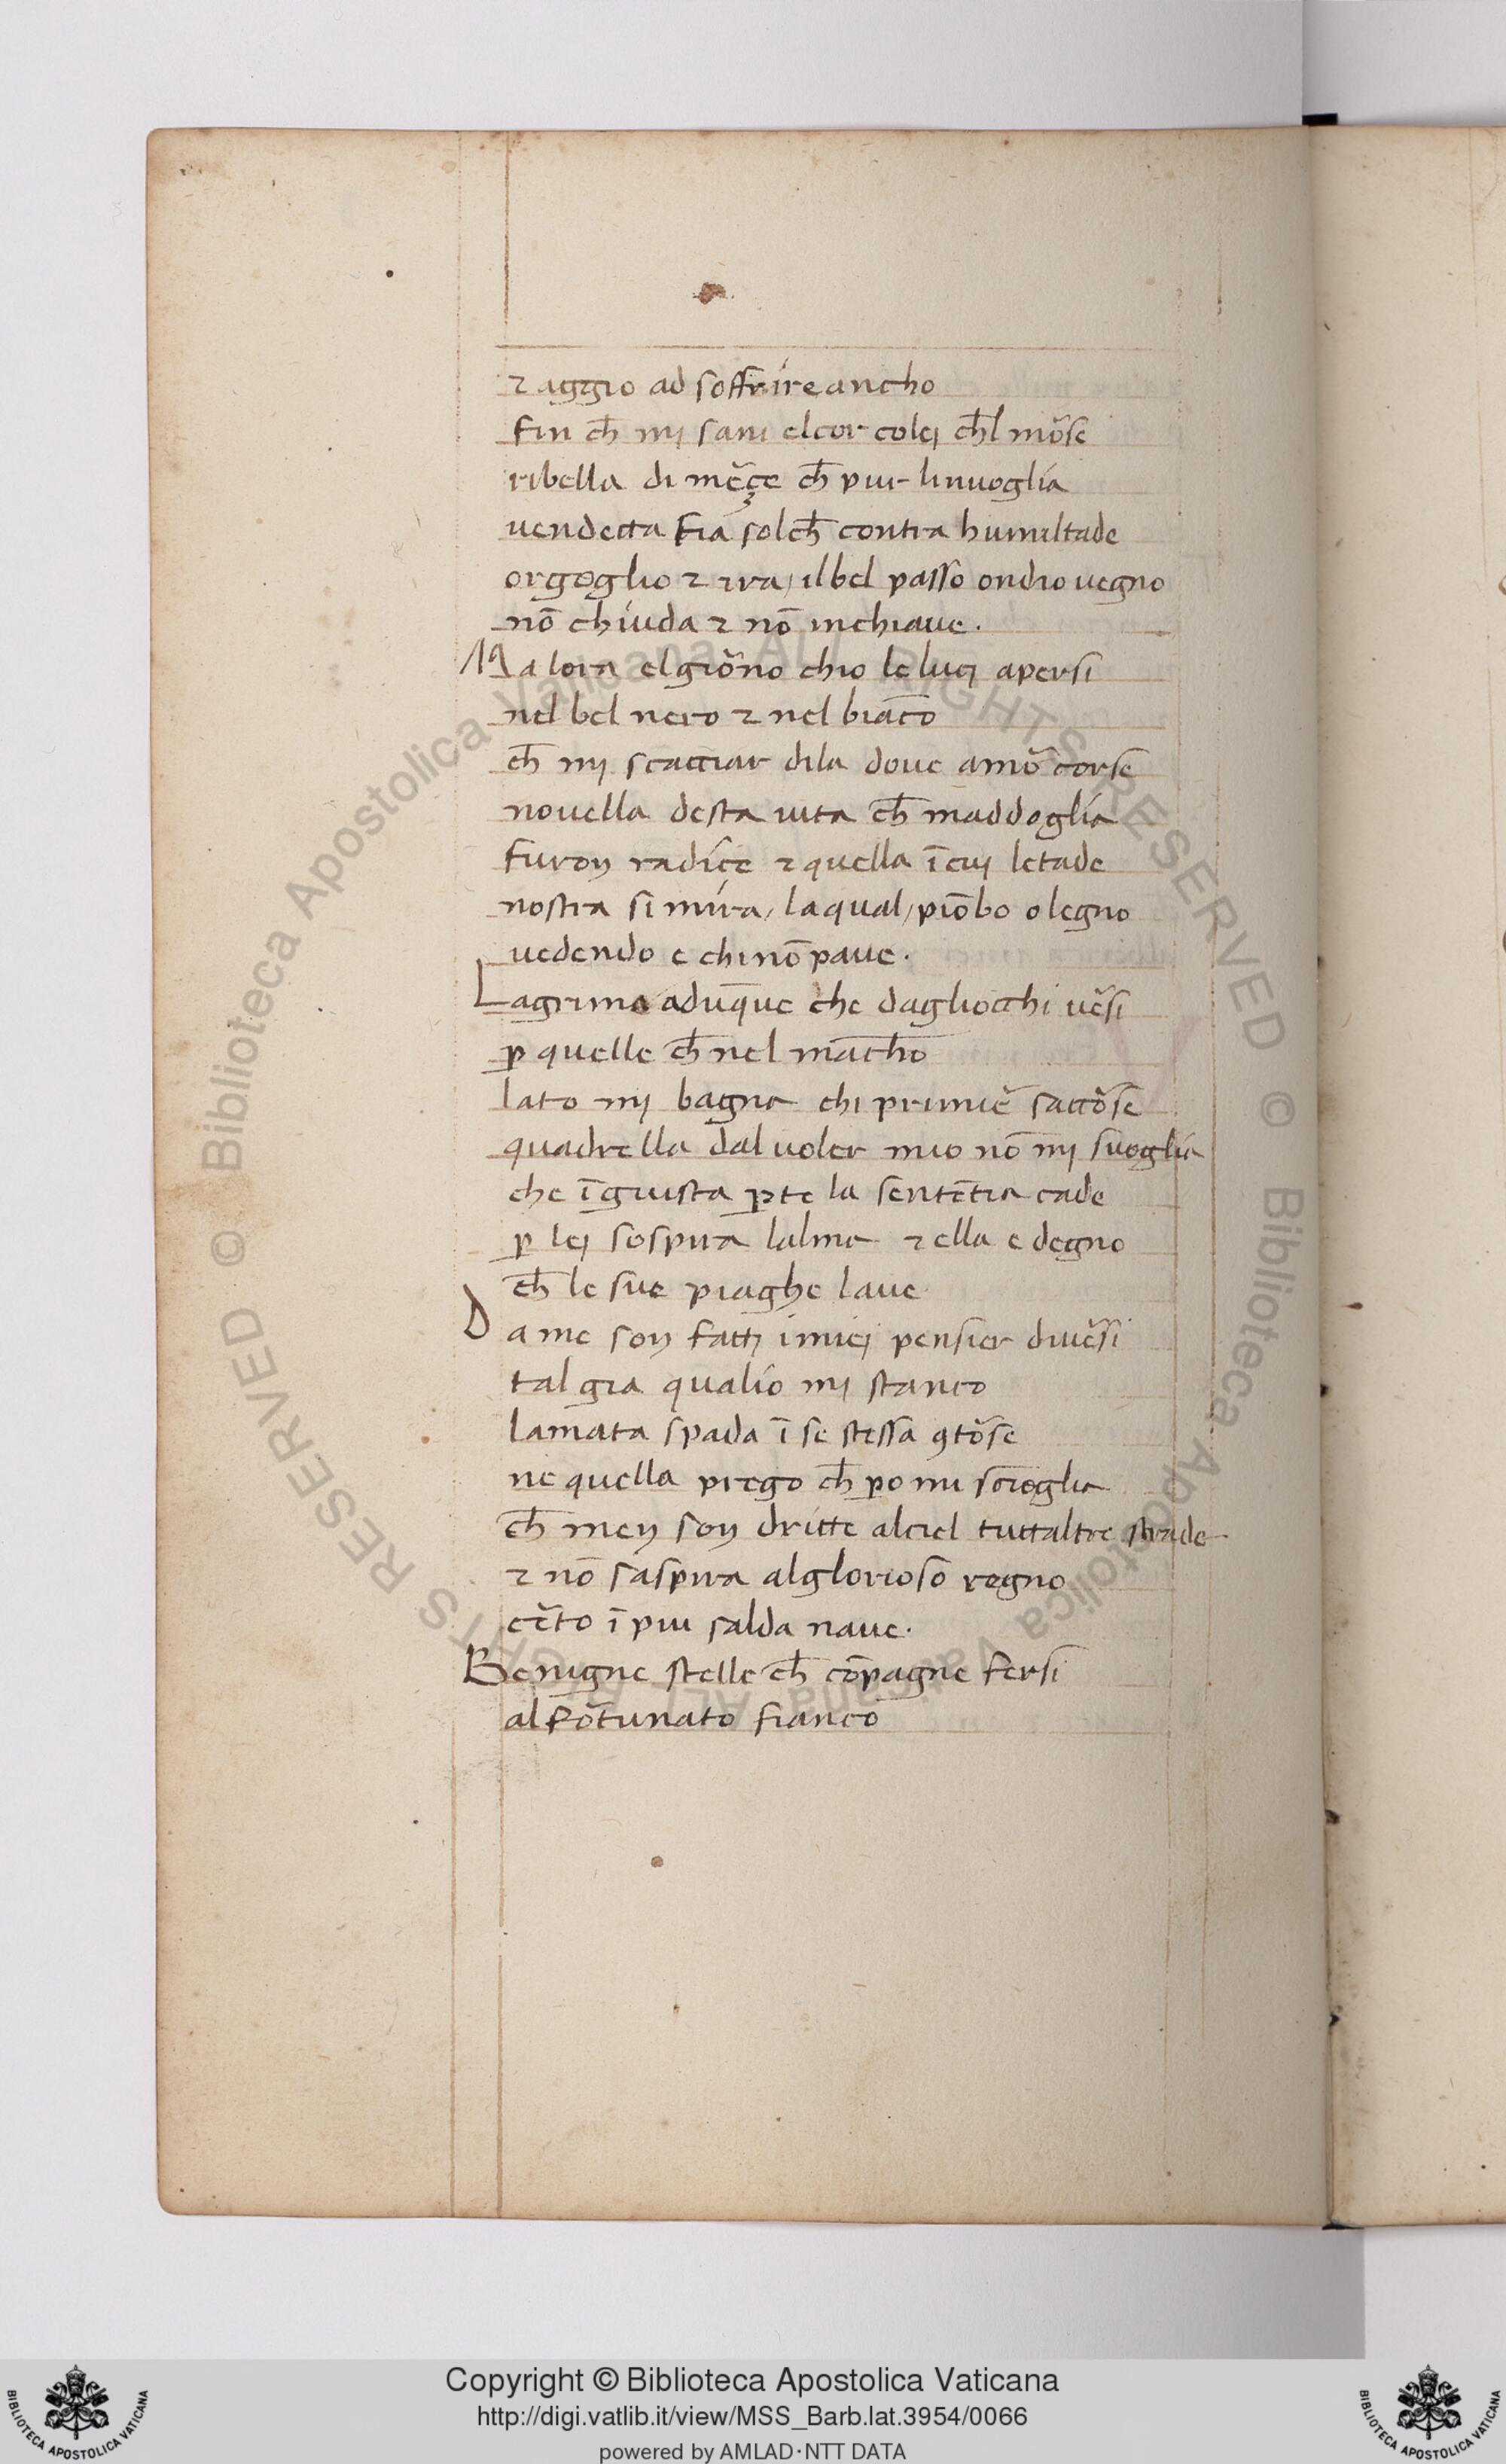 ⁊ aggio ad soffrire ancho
fin ch̄ mj sani elcor colej ch̄l mo᷒se
ribella di me᷒çe ch̄ pur linuoglia
uendetta fia solch̄ contra humiltade
orgoglio ⁊ ira / ilbel passo ondio uegno
nō chiuda ⁊ nō inchiaue.
Ma lora elgio᷒no chio le lucj apersi
nel bel nero ⁊ nel biāco
ch̄ mj scacciar dila doue amo᷒ corse
nouella desta uita ch̄ maddoglia
furon radiçe ⁊ quella ī cuj letade
nostra si mira / laqual / piōbo o legno
uedendo e chi nō paue.
Lagrima adunq̄ue che dagliocchi ue᷒si
ꝑ quelle ch̄ nel māchō
lato mj bagna chi primie᷒ sacco᷒se
quadrella dal uoler mio nō mj suoglia
che ī giusta ꝑte la sentētia cade
ꝑ lej sospira lalma ⁊ ella e degno
ch̄ le sue piaghe laue
Da me son fattj i miej pensier diue᷒si
tal gia qualio mj stanco
lamata spada ī se stessa ꝯto᷒se
ne quella prego ch̄ ꝑo mi scioglia
ch̄ men son dritte alciel tuttaltre strade
⁊ nō saspira alglorioso regno
ce᷒to ī piu salda naue.
Benigne stelle ch̄ cōpagne fersi
al fo᷒tunato fianco
Copyright © Biblioteca Apostolica Vaticana
http://digi.vatlib.it/view/MSS_Barb.lat.3954/0066
powered by AMLAD·NTT DATA
BIBLIOTECA APOSTOLICA VATICANA
BIBLIOTECA APOSTOLICA VATICANA
© Biblioteca Apostolica Vaticana ALL RIGHTS RESERVED © Biblioteca Apostolica Vaticana ALL RIGHTS RESERVED